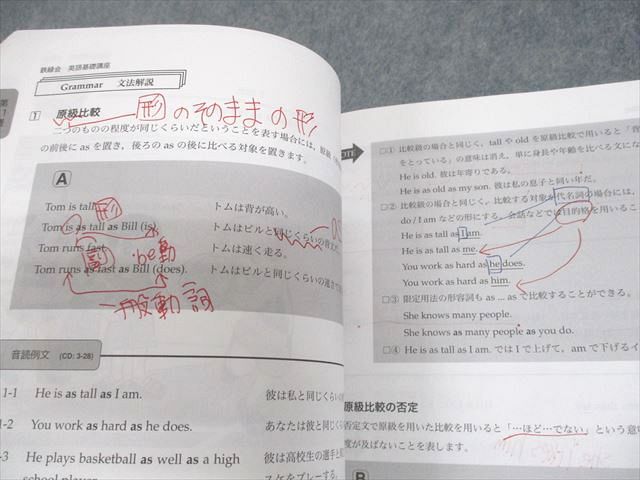 鉄緑会 英語基礎講座
Grammar 文法解説
第
1
1 原級比較
形 のそのままの形
二つのものの程度が同じくらいだということを表す場合には,原級
の前後に as を置き,後ろの as の後に比べる対象を置きます。
A
形
Tom is tall. トムは背が高い。
Tom is as tall as Bill (is). トムはビルと同じくらいの
副 be動
Tom runs fast. トムは速く走る。
Tom runs as fast as Bill (does). トムはビルと同じくらいの速さで
一般動詞
音読例文 (CD: 3-28)
1-1 He is as tall as I am. 彼は私と同じくらい
1-2 You work as hard as he does. あなたは彼と同じくらい
-3 He plays basketball as well as a high 彼は高校生の選手と
school player. スケをプレーする。
OTE
□① 比較級の場合と同じく,tall や old を原級比較で用いると「
をとっている」の意味は消え,単に身長や年齢を比べる文にな
He is old. 彼は年寄りである。
He is as old as my son. 彼は私の息子と同い年だ。
□② 比較級の場合と同じく,比較する対象が代名詞の場合には,
do / I am などの形にする。会話などでは目的格を用いるこ
He is as tall as I am.
He is as tall as me.
You work as hard as he does.
You work as hard as him.
□③ 限定用法の形容詞も as ... as で比較することができる。
She knows many people.
She knows as many people as you do.
□④ He is as tall as I am. では I で上げて,am で下げるイ
原級比較の否定
否定文で原級を用いた比較を用いると「…ほど…でない」という意
度が及ばないことを表します。
B